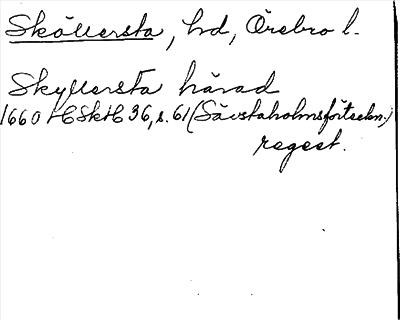 Sköllersta, hd, Örebro l.
Skyllersta härad
1660 HSkH 36, s. 61 (Sävstaholmsförteckn.)
regest.